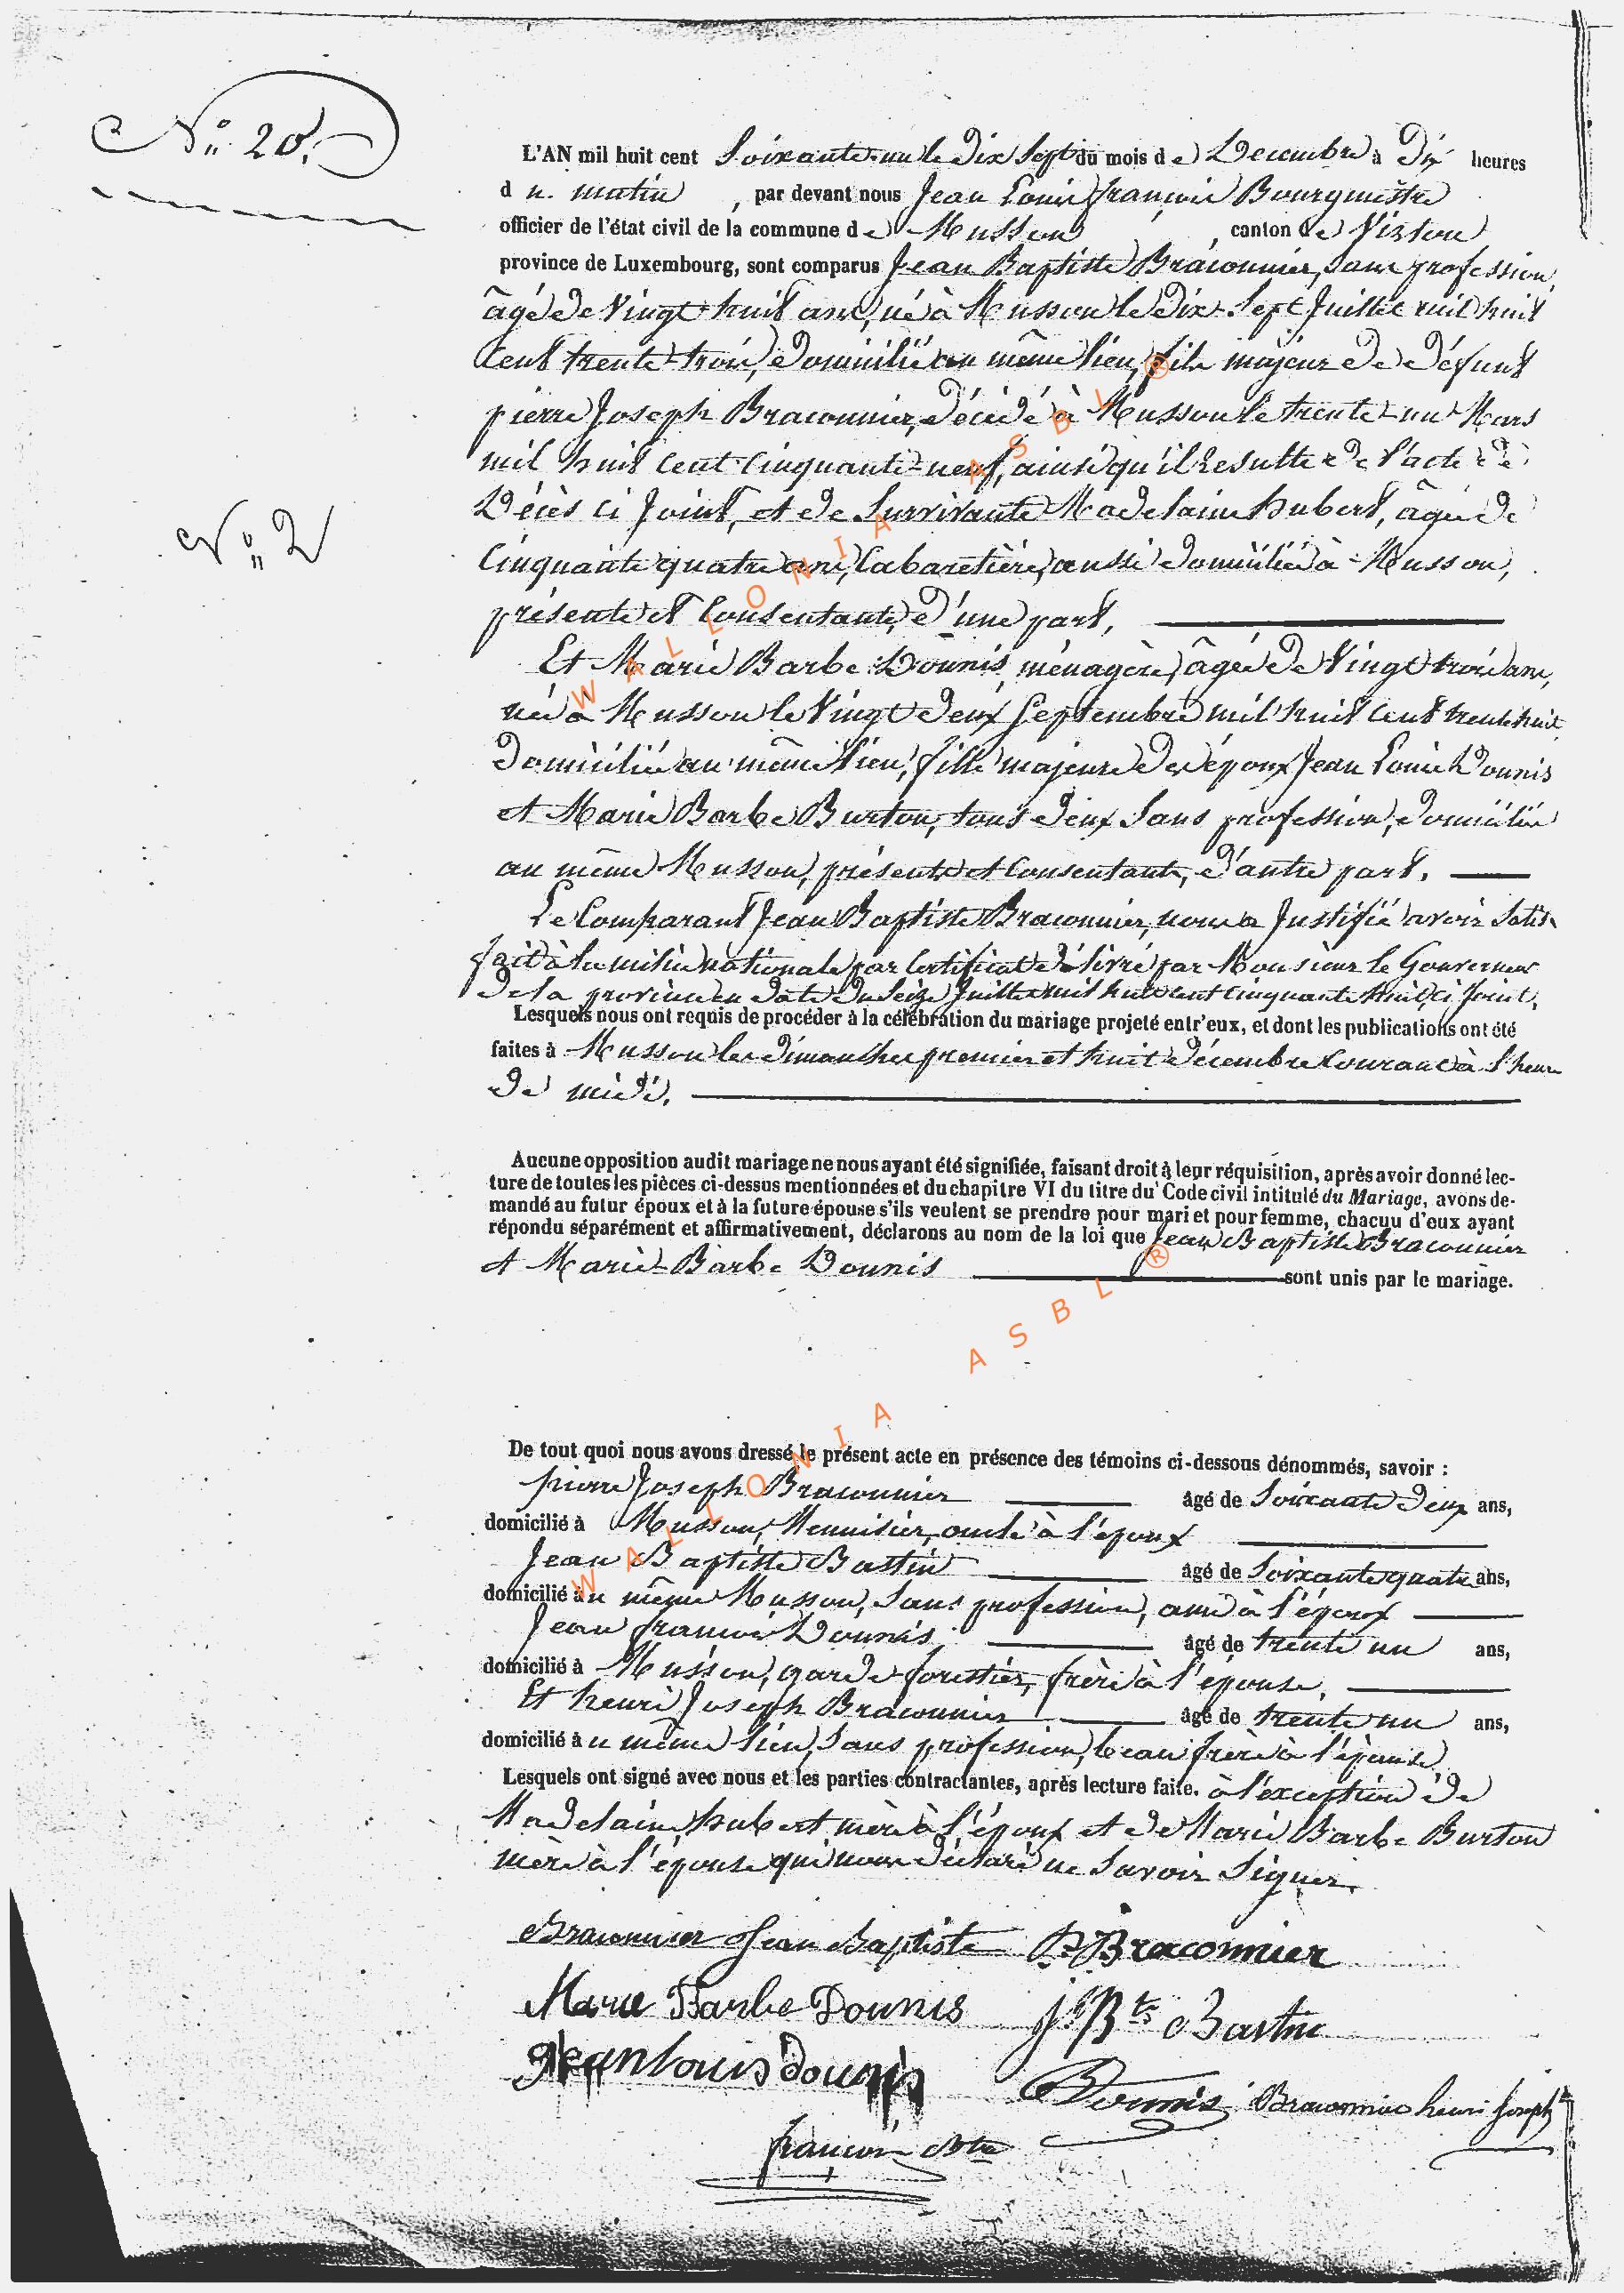 N° 20.
L'AN mil huit cent Soixante-un le Dix Sept du mois de Décembre à Dix heures
du matin, par devant nous Jean Louis françois Bourgmestre
officier de l'état civil de la commune de Musson, canton de Virton
province de Luxembourg, sont comparus Jean Baptiste Braconnier, Sans profession,
âgé de Vingt-huit ans, né à Musson le Dix-Sept Juillet mil huit
Cent trente-trois, domicilié au même lieu, fils majeur de défunt
pierre Joseph Braconnier, décédé à Musson le trente-un Mars
mil huit Cent Cinquante-neuf, ainsi qu'il Résulte de l'acte de
Décès ci Joint, et de Survivante Madelaine hubert, âgée de
Cinquante quatre ans, Cabaretière, aussi domiciliée à Musson,
présente et Consentante, d'une part,
Et Marie Barbe Dounis, ménagère, âgée de Vingt trois ans,
née à Musson le Vingt deux Septembre mil huit Cent trente huit
Domiciliée au même lieu, fille majeure des époux Jean Louis Dounis
et Marie Barbe Burton, tous deux Sans profession, domiciliés
au même Musson, présents et Consentants, d'autre part.
N° 2
Le Comparant Jean Baptiste Braconnier, nous a Justifié avoir Satis-
fait à la milice nationale par Certificat délivré par Monsieur le Gouverneur
De la province en date du Seize Juillet mil huit cent cinquante huit, ci Joint.
Lesquels nous ont requis de procéder à la célébration du mariage projeté entr'eux, et dont les publications ont été
faites à Musson les dimanches premier et huit décembre Courant à l'heure
De midi.
Aucune opposition audit mariage ne nous ayant été signifiée, faisant droit à leur réquisition, après avoir donné lec-
ture de toutes les pièces ci-dessus mentionnées et du chapitre VI du titre du Code civil intitulé du Mariage, avons de-
mandé au futur époux et à la future épouse s'ils veulent se prendre pour mari et pour femme, chacuu d'eux ayant
répondu séparément et affirmativement, déclarons au nom de la loi que Jean Baptiste Braconnier
et Marie-Barbe Dounis sont unis par le mariage.
De tout quoi nous avons dressé le présent acte en présence des témoins ci-dessous dénommés, savoir :
pierre Joseph Braconnier âgé de Soixante Deux ans,
domicilié à Musson, Menuisier, oncle à l'époux
Jean Baptiste Bastin âgé de Soixante quatre ans,
domicilié au même Musson, Sans profession, ami à l'époux
Jean françois Dounis âgé de trente un ans,
domicilié à Musson, garde-forestier, frère à l'épouse,
Et henri Joseph Braconnier âgé de trente un ans,
domicilié au même lieu, Sans profession, beau frère à l'épouse
Lesquels ont signé avec nous et les parties contractantes, après lecture faite. à l'exception de
Madelaine hubert mère à l'époux et de Marie Barbe Burton
mère à l'épouse qui nous déclaré ne Savoir Signer.
Braconnier Jean Baptiste P Braconnier
Marie Barbe Dounis J Bte Bastin
Jean Louis dounis Dounis Braconnier henri Joseph
françois Btre
WALLONIA ASBL ®
WALLONIA ASBL ®